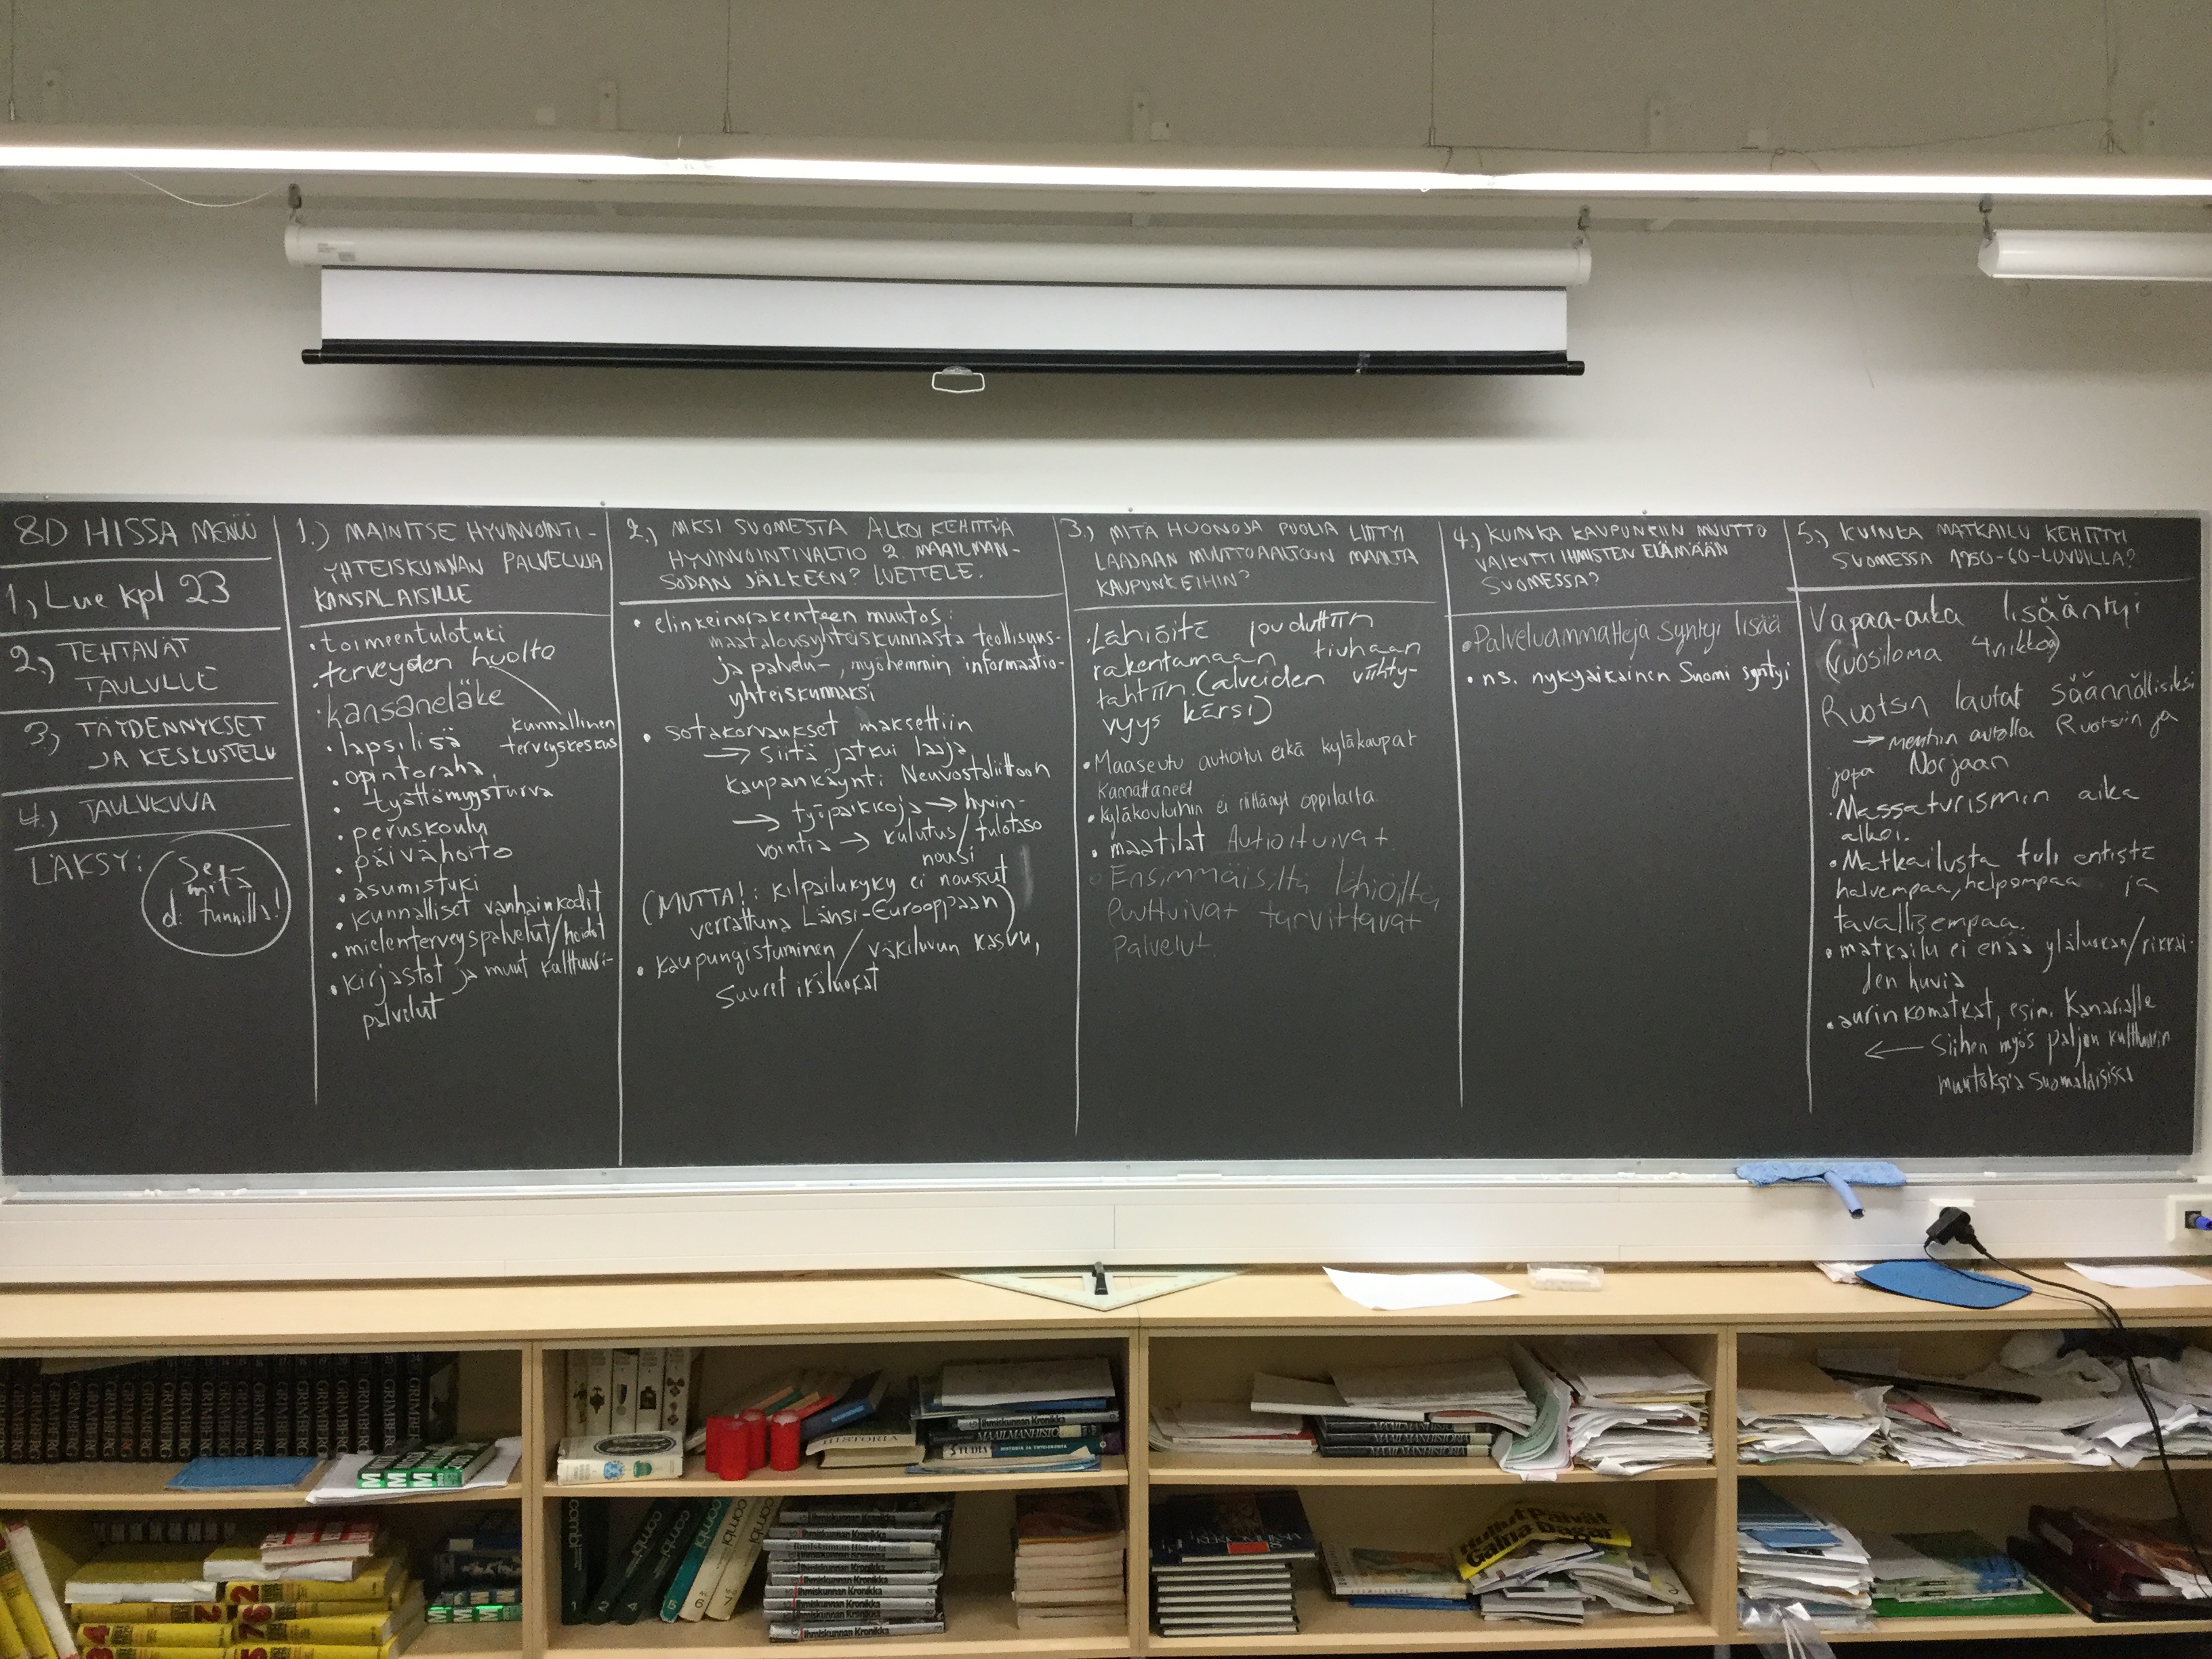 8D HISSA MENÜÜ
1.) Lue kpl 23
2.) TEHTÄVÄT
TAULULLE
3.) TÄYDENNYKSET
JA KESKUSTELU
4.) TAULUKUVA
LÄKSY:
Se,
mitä
tunnilla!
1.) MAINITSE HYVINVOINTI-
YHTEISKUNNAN PALVELUJA
KANSALAISILLE
• toimeentulotuki
• terveyden huolto
• kansaneläke
kunnallinen
terveyskeskus
• lapsilisä
• opintoraha
• työttömyysturva
• peruskoulu
• päivähoito
• asumistuki
• kunnalliset vanhainkodit
• mielenterveyspalvelut/hoidot
• kirjastot ja muut kulttuuri-
palvelut
2.) MIKSI SUOMESTA ALKOI KEHITTYÄ
HYVINVOINTIVALTIO 2. MAAILMAN-
SODAN JÄLKEEN? LUETTELE.
• elinkeinorakenteen muutos:
maatalousyhteiskunnasta teollisuus-
ja palvelu-, myöhemmin informaatio-
yhteiskunnaksi
• sotakorvaukset maksettiin
→ siitä jatkui laaja
kaupankäynti Neuvostoliittoon
→ työpaikkoja → hyvin-
vointia → kulutus/tulotaso
nousi
(MUTTA!: kilpailukyky ei noussut
verrattuna Länsi-Eurooppaan)
• kaupungistuminen / väkiluvun kasvu,
suuret ikäluokat
3.) MITÄ HUONOJA PUOLIA LIITTYI
LAAJAAN MUUTTOAALTOON MAALTA
KAUPUNKEIHIN?
• Lähiöitä jouduttiin
rakentamaan tiuhaan
tahtiin. (alueiden viihty-
vyys kärsi)
• Maaseutu autioitui eikä kyläkaupat
kannattaneet
• kyläkouluihin ei riittänyt oppilaita
• maatilat Autioituivat
• Ensimmäisiltä lähiöiltä
Puuttuivat tarvittavat
Palvelut.
4.) KUINKA KAUPUNKIIN MUUTTO
VAIKUTTI IHMISTEN ELÄMÄÄN
SUOMESSA?
• Palveluammatteja syntyi lisää
• ns. nykyaikainen Suomi syntyi
5.) KUINKA MATKAILU KEHITTYI
SUOMESSA 1950-60-LUVUILLA?
Vapaa-aika lisääntyi
(vuosiloma 4viikkoa)
Ruotsin lautat säännöllisiksi
→ mentiin autolla Ruotsiin ja
jopa Norjaan
• Massaturismin aika
alkoi.
• Matkailusta tuli entistä
halvempaa, helpompaa ja
tavallisempaa.
• matkailu ei enää yläluokan/rikkai-
den huvia
• aurinkomatkat, esim. Kanarialle
← Siihen myös paljon kulttuurin
muutoksia suomalaisissa
GRIMBERG
HISTORIA
Ihmiskunnan Kronikka
MAAILMANHISTORIA
STUDIA
HISTORIA JA YHTEISKUNTA
MAAILMANHISTORIA
MAAILMANHISTORIA
MAAILMANHISTORIA
combi
combi
combi
combi
combi
Ihmiskunnan Kronikka
Ihmiskunnan Historia
Ihmiskunnan Kronikka
Ihmiskunnan Kronikka
Ihmiskunnan Kronikka
Ihmiskunnan Kronikka
Hullut Päivät
Galna Dagar